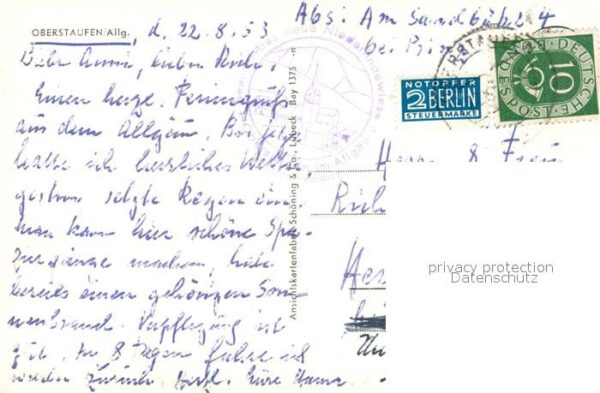 OBERSTAUFEN Allg.
d. 22.8.53
Abs: Am Sandbühl 4
bei
Liebe Anni, lieber
Einen herzl. Feriengruß
aus dem Allgäu. Bis jetzt
hatte ich herrliches Wetter,
gestern setzte Regen ein
Man kann hier schöne Spa-
ziergänge machen, habe
bereits einen gehörigen Son-
nenbrand. Verpflegung ist
gut. In 8 Tagen fahre ich
wieder zurück. Herzl. Eure
Ansichtskartenfabrik Schöning & Co., Lübeck Bay 1375
NOTOPFER
2 BERLIN
STEUERMARKE
DEUTSCHE BUNDESPOST
10
Herrn & Frau
privacy protection
Datenschutz